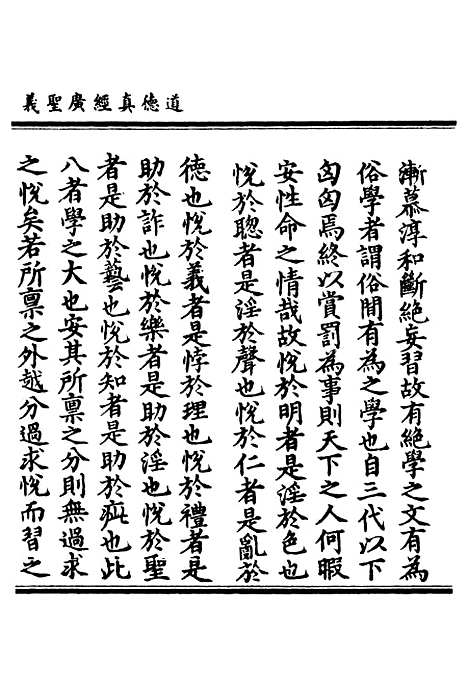 道德真經廣聖義
漸慕淳和斷絕妄習故有絕學之文有為
俗學者謂俗間有為之學也自三代以下
匈匈焉終以賞罰為事則天下之人何暇
安性命之情哉故悅於明者是淫於色也
悅於聦者是淫於聲也悅於仁者是亂於
德也悅於義者是悖於理也悅於禮者是
助於詐也悅於樂者是助於淫也悅於聖
者是助於藝也悅於知者是助於疵也此
八者學之大也安其所禀之分則無過求
之悅矣若所禀之外越分過求悅而習之